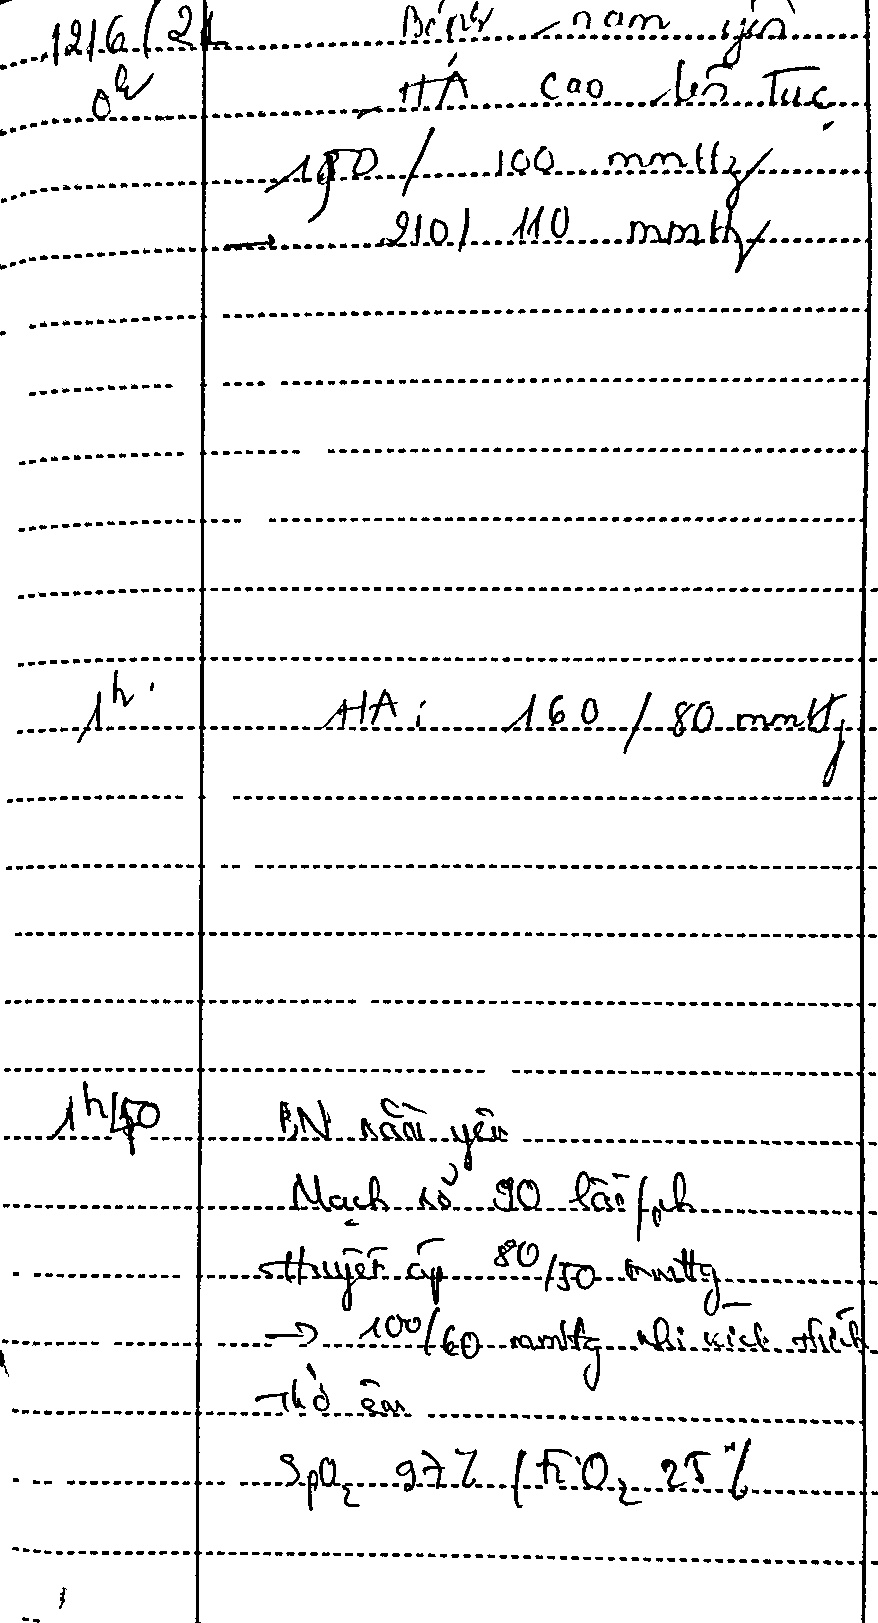 12/6/21 Bệnh nằm yên
0h HA cao liên tục
180 / 100 mmHg
→ 210 / 110 mmHg
1h HA: 160 / 80 mmHg
1h40 BN nằm yên
Mạch số 90 lần/ph
Huyết áp 80/50 mmHg
→ 100/60 mmHg khi kích thích
Thở êm
SpO2 97% / FiO2 25%